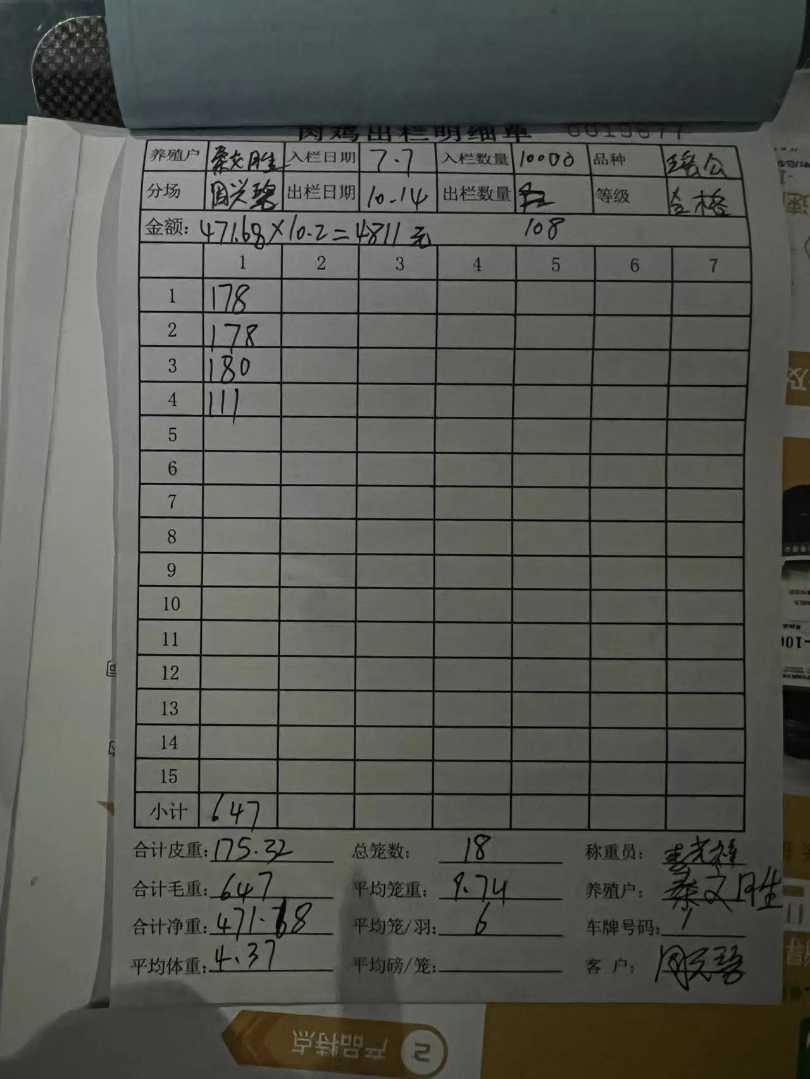 肉鸡出栏明细单 0019677
养殖户 桑文胜 入栏日期 7.7 入栏数量 10000 品种
分场 周兴碧 出栏日期 10.14 出栏数量 等级 合格
金额: 471.68×10.2=4811元 108
1 2 3 4 5 6 7
1 178
2 178
3 180
4 111
5
6
7
8
9
10
11
12
13
14
15
小计 647
合计皮重: 175.32 总笼数: 18 称重员:
合计毛重: 647 平均笼重: 9.74 养殖户: 桑文胜
合计净重: 471.68 平均笼/羽: 6 车牌号码: /
平均体重: 4.37 平均磅/笼: 客 户: 周兴碧
产品特点 2